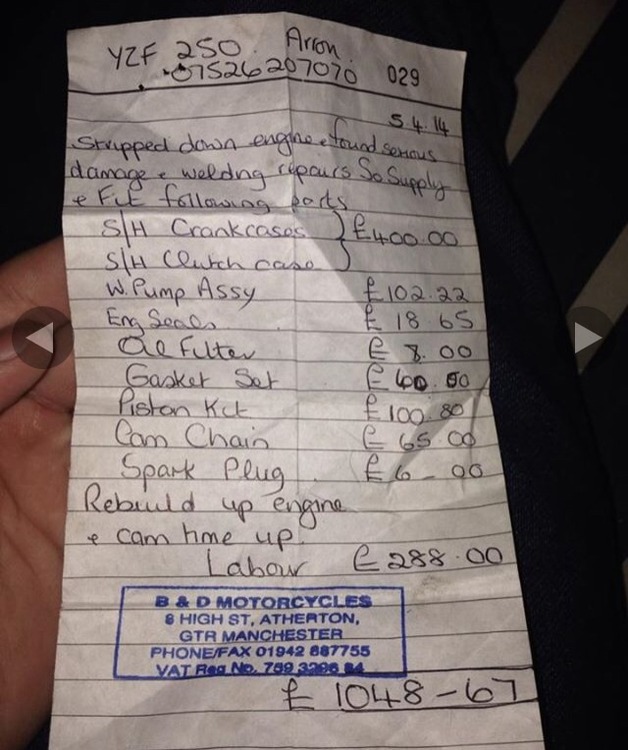 YZF 250. Arron.
07526207070 029
5.4.14
Stripped down engine & found serious
damage & welding repairs So Supply
& Fit following parts
S/H Crankcases } £400.00
S/H Clutch case
W.Pump Assy £102.22
Eng Seals £ 18.65
Oil Filter £ 8.00
Gasket Set £ 60.00
Piston Kit £100.80
Cam Chain £ 65.00
Spark Plug £6-00
Rebuild up engine
& cam time up.
Labour £288.00
B & D MOTORCYCLES
8 HIGH ST, ATHERTON,
GTR MANCHESTER
PHONE/FAX 01942 887755
VAT Reg No. 759
£ 1048-67